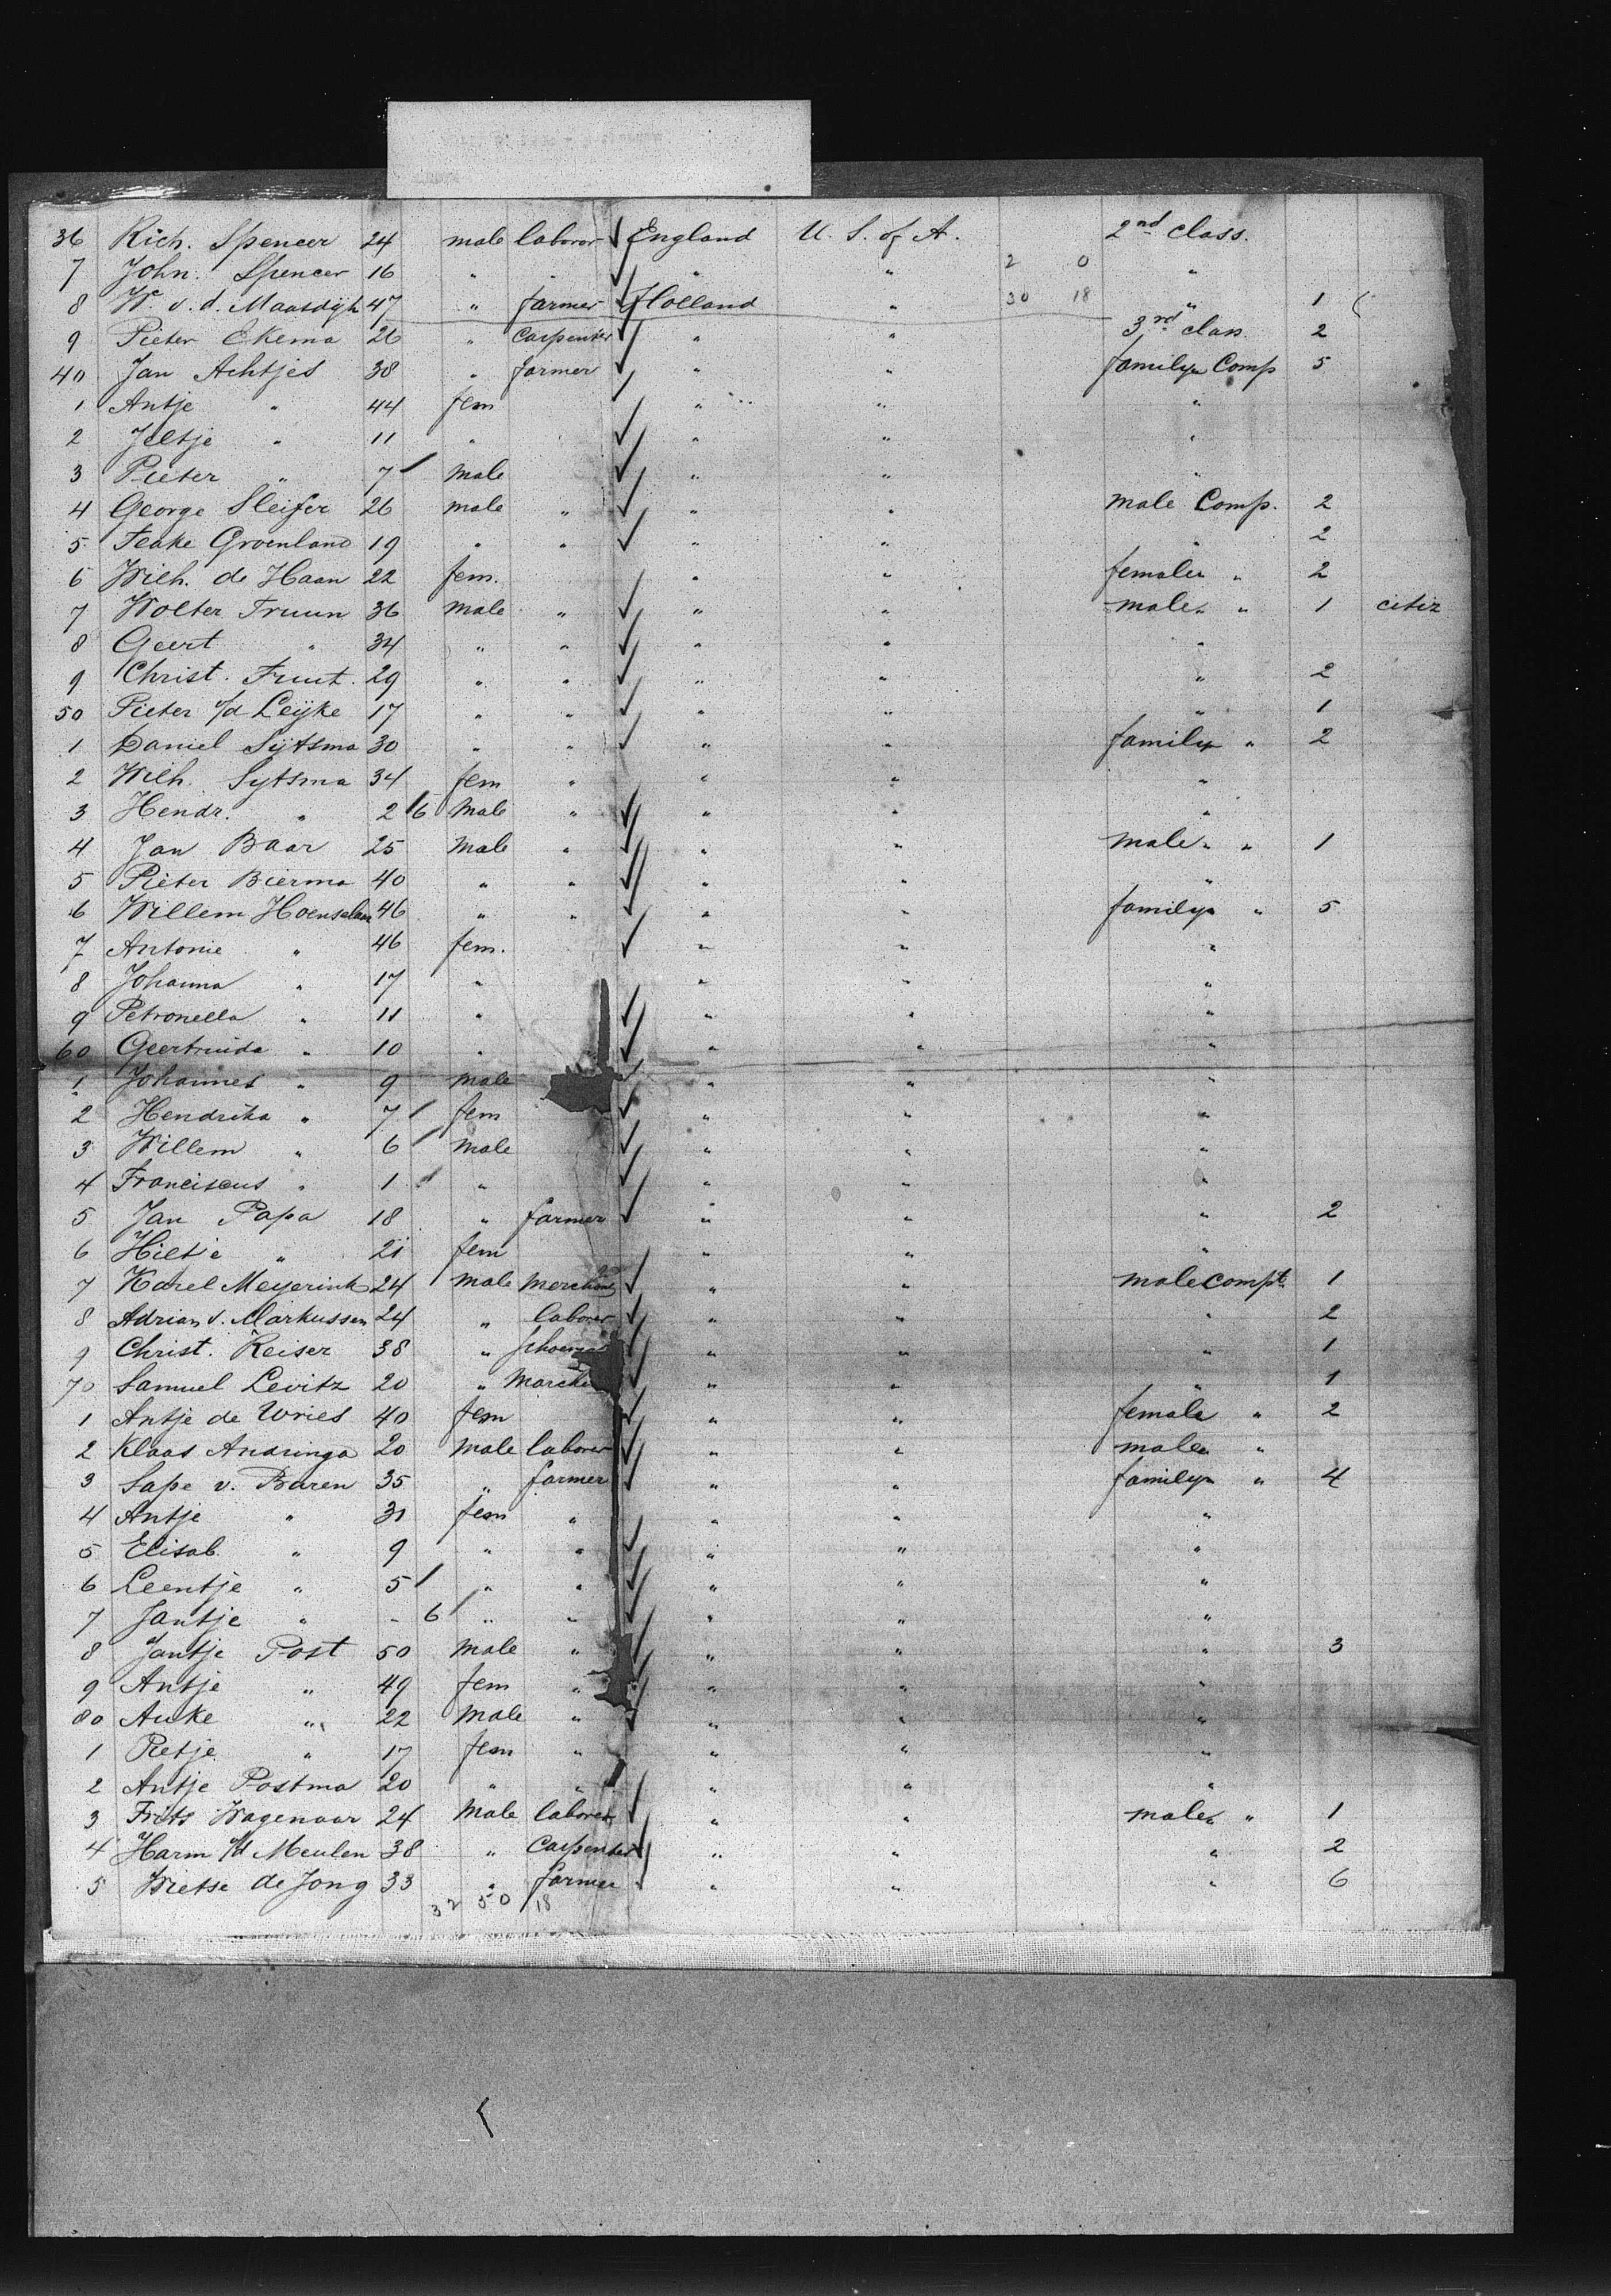 36 Rich. Spencer 24 male laborer England U. S. of A. 2nd class.
7 John. Spencer 16 " " " " 2 0 "
8 W. v. d. Maasdijk 47 " farmer Holland " 30 18 " 1
9 Pieter Ekema 26 " Carpenter " " 3rd class. 2
40 Jan Achtjes 38 " farmer " " family Comp 5
1 Antje " 44 fem " " "
2 Jeltje " 11 " " " "
3 Pieter " 7 male " " "
4 George Sleifer 26 male " " " male Comp. 2
5 Feake Groenland 19 " " " " " 2
6 Wilh. de Haan 22 fem. " " females " 2
7 Wolter Truun 36 male " " " males " 1 citiz
8 Geert " 34 " " " " "
9 Christ. Fruut. 29 " " " " " 2
50 Pieter v/d Leijke 17 " " " " " 1
1 Daniel Sijtsma 30 " " " " family " 2
2 Wilh. Sytsma 34 fem " " " "
3 Hendr. " 2 6 Male " " " "
4 Jan Baar 25 male " " " male " " 1
5 Pieter Bierma 40 " " " " "
6 Willem 46 " " " " family " 5
7 Antonie " 46 fem. " " "
8 Johanna " 17 " " " "
9 Petronella " 11 " " " "
60 Geertruida " 10 " " " "
1 Johannes " 9 male " " "
2 Hendrika " 7 fem " " "
3 Willem " 6 male " " "
4 Franciscus " 1 " " " "
5 Jan Papa 18 " farmer " " " 2
6 Hiltje " 21 fem " " "
7 Karel Meyerink 24 male merchant " " male compt. 1
8 Adrian v. Markussen 24 " laborer " " " 2
9 Christ. Keiser 38 " " " " 1
70 Samuel Levitz 20 " " " " 1
1 Antje de Vries 40 fem " " female " 2
2 Klaas Andringa 20 male laborer " " males "
3 Sape v. Buren 35 " farmer " " family " 4
4 Antje " 31 fem " " " "
5 Elisab. " 9 " " " " "
6 Leentje " 5 " " " " "
7 Jantje " - 6 " " " " "
8 Jantje Post 50 male " " " " 3
9 Antje " 49 fem " " " "
80 Auke " 22 Male " " " "
1 Pietje " 17 fem " " " "
2 Antje Postma 20 " " " " "
3 Frits Wagenaar 24 Male laborer " " males " 1
4 Harm v/d Meulen 38 " Carpenter " " " 2
5 Wietse de Jong 33 " farmer " " " 6
32 50 18